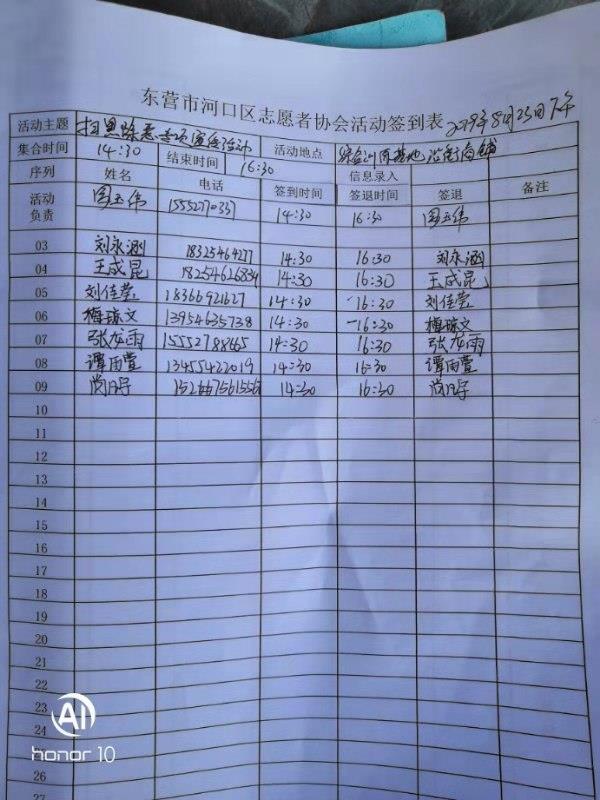 东营市河口区志愿者协会活动签到表 2019年8月25日下午
活动主题 扫黑除恶专项宣传活动
集合时间 14:30 结束时间 16:30 活动地点 综合训练基地 沿街商铺
序列 姓名 电话 签到时间 信息录入 签退时间 签退 备注
活动负责 周玉伟 14:30 16:30 周玉伟
03 刘永涵 18325464277 14:30 16:30 刘永涵
04 王成昆 18254626834 14:30 16:30 王成昆
05 刘佳莹 18366921627 14:30 16:30 刘佳莹
06 梅琼文 13954635738 14:30 16:30 梅琼文
07 张龙雨 15552788865 14:30 16:30 张龙雨
08 谭雨萱 13455422019 14:30 16:30 谭雨萱
09 14:30 16:30
10
11
12
13
14
15
16
17
18
19
20
21
22
23
24
25
26
27
AI
honor 10